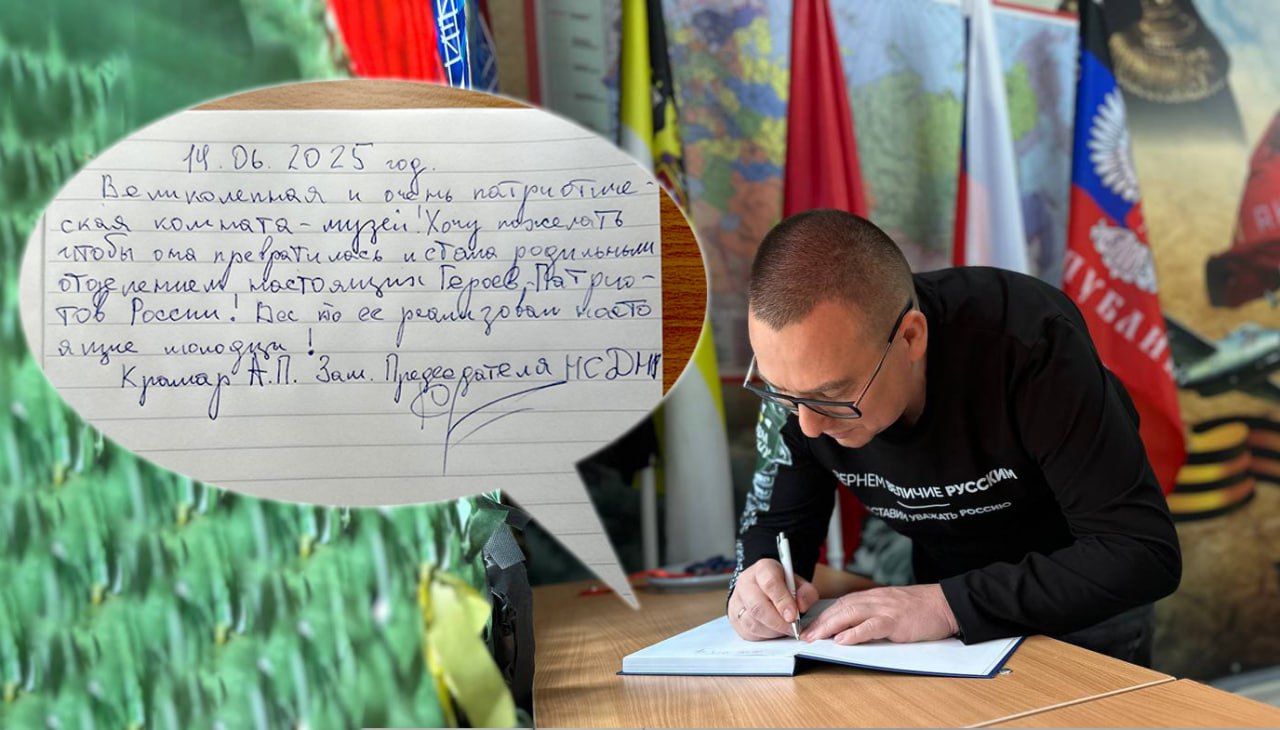 14.06.2025 год.
Великолепная и очень патриотиче-
ская комната-музей! Хочу пожелать
чтобы она превратилась и стала родильным
отделением настоящих Героев, Патрио-
тов России! Все кто ее реализовал насто
ящие молодцы!
Крамар А.П. Зам. Председателя НСДНР
ЕРНЕМ ВЕЛИЧИЕ РУССКИМ
СТАВИМ УВАЖАТЬ РОССИЮ
ПУБЛИ